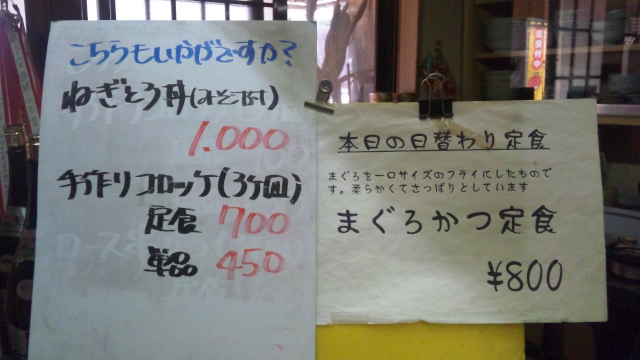 こちらもいかがですか?
ねぎとろ丼(みそ汁付)
1.000
手作りコロッケ(3ヶ皿)
定食 700
単品 450
本日の日替わり定食
まぐろを一口サイズのフライにしたもので
す。柔らかくてさっぱりとしています
まぐろかつ定食
¥800